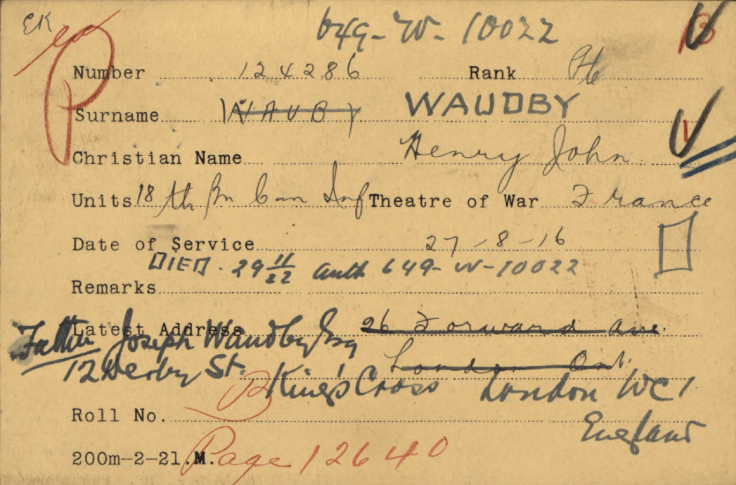 EK 649-W-10022 B
Number 124286 Rank Pte
Surname WAUBY WAUDBY 1
Christian Name Henry John
Units 18 th Bn Can Inf Theatre of War France
Date of Service 27-8-16
DIED. 29 11/22 auth 649-W-10022
Remarks
Latest Address 26 Forward Ave.
Father Joseph Waudby Esq London Ont.
12 Derby St. B King's Cross London WC1
Roll No. England
200m-2-21.M. Page 12640